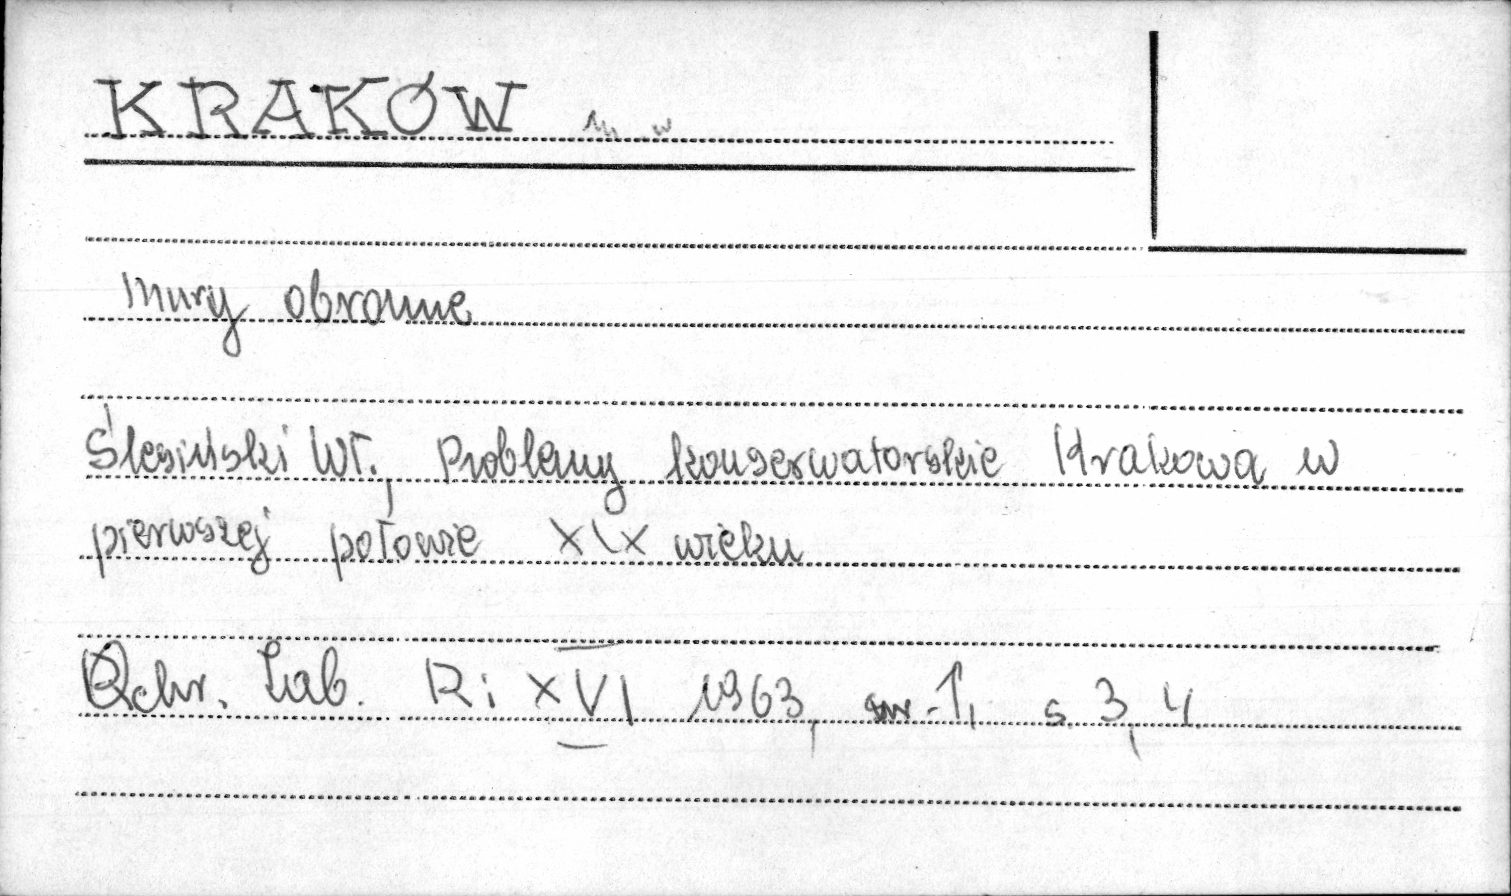 KRAKÓW m. w
Mury obronne
Ślesiński Wł., Problemy konserwatorskie Krakowa w
pierwszej połowie XIX wieku
Ochr. Zab. R: XVI 1963, nr 1, s. 3, 4